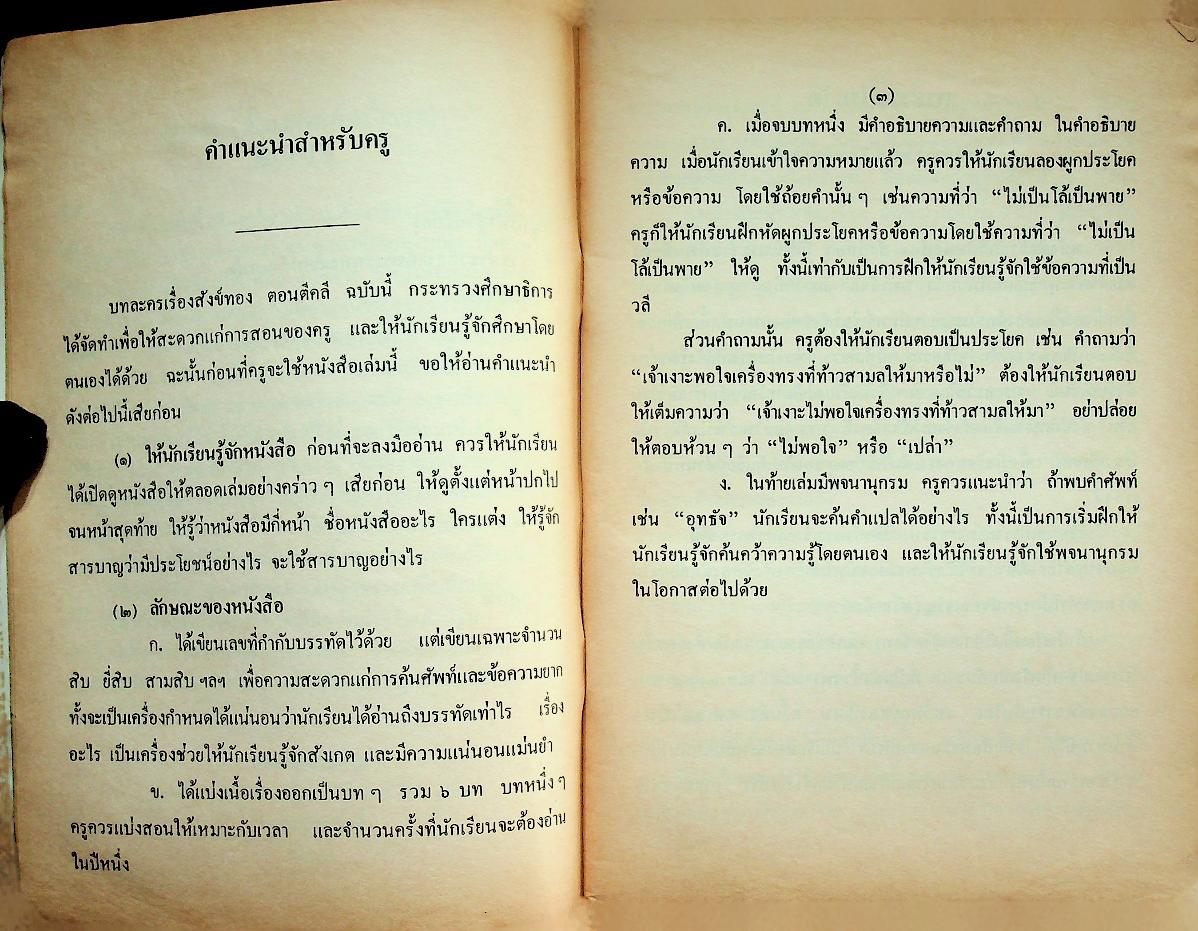 คำแนะนำสำหรับครู
บทละครเรื่องสังข์ทอง ตอนตีคลี ฉบับนี้ กระทรวงศึกษาธิการ
ได้จัดทำเพื่อให้สะดวกแก่การสอนของครู และให้นักเรียนรู้จักศึกษาโดย
ตนเองได้ด้วย ฉะนั้นก่อนที่ครูจะใช้หนังสือเล่มนี้ ขอให้อ่านคำแนะนำ
ดังต่อไปนี้เสียก่อน
(๑) ให้นักเรียนรู้จักหนังสือ ก่อนที่จะลงมืออ่าน ควรให้นักเรียน
ได้เปิดดูหนังสือให้ตลอดเล่มอย่างคร่าว ๆ เสียก่อน ให้ดูตั้งแต่หน้าปกไป
จนหน้าสุดท้าย ให้รู้ว่าหนังสือมีกี่หน้า ชื่อหนังสืออะไร ใครแต่ง ให้รู้จัก
สารบาญว่ามีประโยชน์อย่างไร จะใช้สารบาญอย่างไร
(๒) ลักษณะของหนังสือ
ก. ได้เขียนเลขที่กำกับบรรทัดไว้ด้วย แต่เขียนเฉพาะจำนวน
สิบ ยี่สิบ สามสิบ ฯลฯ เพื่อความสะดวกแก่การค้นศัพท์และข้อความยาก
ทั้งจะเป็นเครื่องกำหนดได้แน่นอนว่านักเรียนได้อ่านถึงบรรทัดเท่าไร เรื่อง
อะไร เป็นเครื่องช่วยให้นักเรียนรู้จักสังเกต และมีความแน่นอนแม่นยำ
ข. ได้แบ่งเนื้อเรื่องออกเป็นบท ๆ รวม ๖ บท บทหนึ่ง ๆ
ครูควรแบ่งสอนให้เหมาะกับเวลา และจำนวนครั้งที่นักเรียนจะต้องอ่าน
ในปีหนึ่ง
(๓)
ค. เมื่อจบบทหนึ่ง มีคำอธิบายความและคำถาม ในคำอธิบาย
ความ เมื่อนักเรียนเข้าใจความหมายแล้ว ครูควรให้นักเรียนลองผูกประโยค
หรือข้อความ โดยใช้ถ้อยคำนั้น ๆ เช่นความที่ว่า “ไม่เป็นโล้เป็นพาย”
ครูก็ให้นักเรียนฝึกหัดผูกประโยคหรือข้อความโดยใช้ความที่ว่า “ไม่เป็น
โล้เป็นพาย” ให้ดู ทั้งนี้เท่ากับเป็นการฝึกให้นักเรียนรู้จักใช้ข้อความที่เป็น
วลี
ส่วนคำถามนั้น ครูต้องให้นักเรียนตอบเป็นประโยค เช่น คำถามว่า
“เจ้าเงาะพอใจเครื่องทรงที่ท้าวสามลให้มาหรือไม่” ต้องให้นักเรียนตอบ
ให้เต็มความว่า “เจ้าเงาะไม่พอใจเครื่องทรงที่ท้าวสามลให้มา” อย่าปล่อย
ให้ตอบห้วน ๆ ว่า “ไม่พอใจ” หรือ “เปล่า”
ง. ในท้ายเล่มมีพจนานุกรม ครูควรแนะนำว่า ถ้าพบคำศัพท์
เช่น “อุทธัจ” นักเรียนจะค้นคำแปลได้อย่างไร ทั้งนี้เป็นการเริ่มฝึกให้
นักเรียนรู้จักค้นคว้าความรู้โดยตนเอง และให้นักเรียนรู้จักใช้พจนานุกรม
ในโอกาสต่อไปด้วย